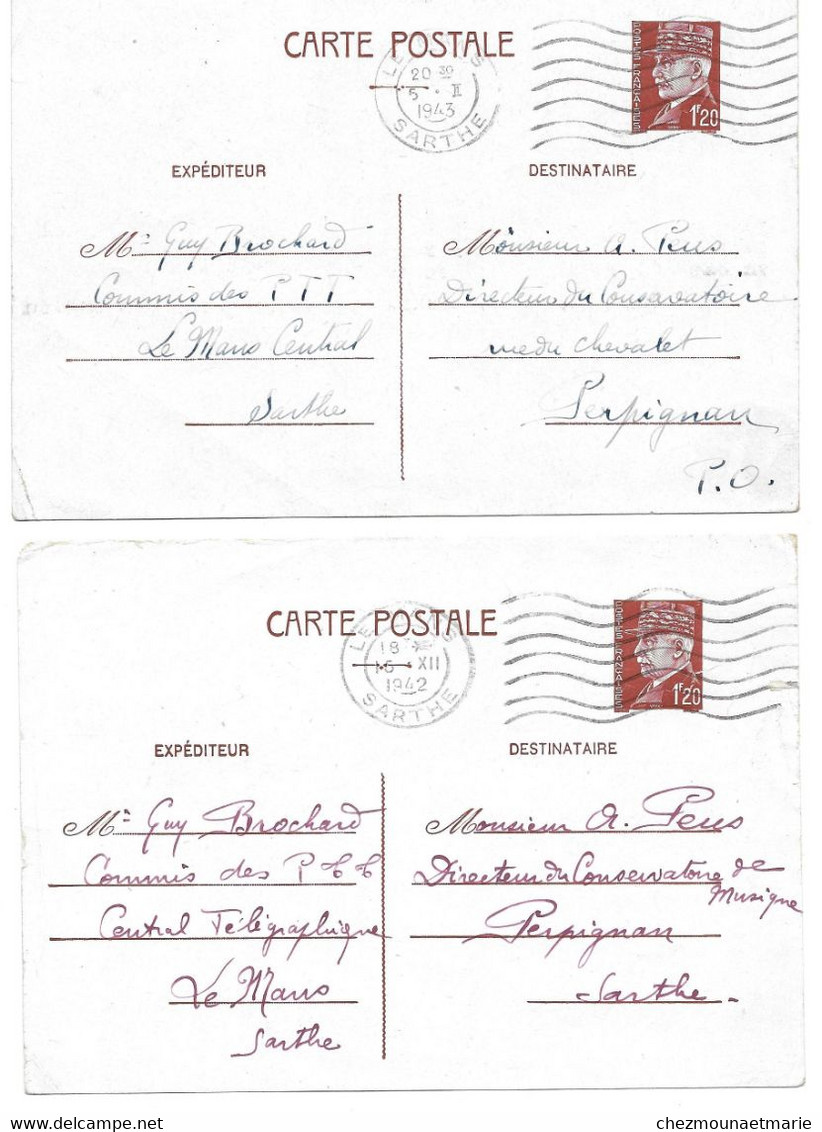 CARTE POSTALE
20 30
5 · II
1943
SARTHE
POSTES FRANÇAISES
1F20
EXPÉDITEUR
DESTINATAIRE
Mr Guy Brochard
Commis des PTT
Le Mans Central
Sarthe
Monsieur A. Peus
Directeur du Consavatoire
rue du Chevalet
Perpignan
P.O.
CARTE POSTALE
18
16 XII
1942
SARTHE
POSTES FRANÇAISES
1F20
EXPÉDITEUR
DESTINATAIRE
Mr Guy Brochard
Commis des PTT
Central Télégraphique
Le Mans
Sarthe
Monsieur A. Peus
Directeur du Conservatoire de
Musique
Perpignan
Sarthe
chezmounaetmarie